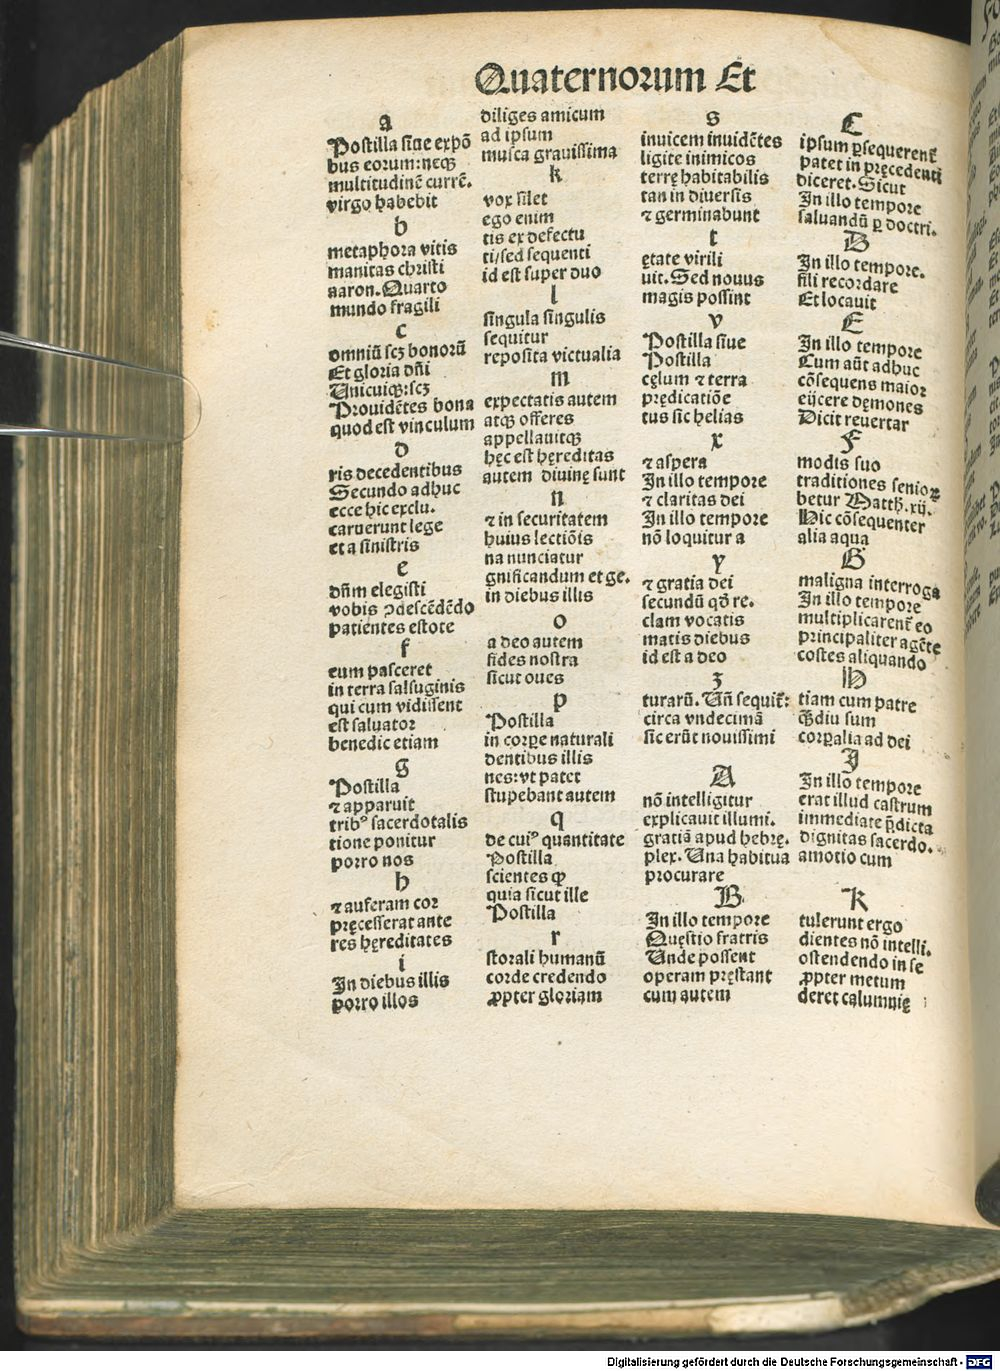 Quaternorum Et
a
Postilla siue expō
bus eorum: neqꝫ
multitudinē currē.
virgo habebit
b
metaphora vitis
manitas christi
aaron. Quarto
mundo fragili
c
omniū scꝫ bonorū
Et gloria dñi
Unicuiqꝫ: scꝫ
Prouidētes bona
quod est vinculum
d
ris decedentibus
Secundo adhuc
ecce hic exclu.
caruerunt lege
et a sinistris
e
dñm elegisti
vobis ꝯdescēdēdo
patientes estote
f
eum pasceret
in terra salsuginis
qui cum vidissent
est saluator
benedic etiam
g
Postilla
⁊ apparuit
tribꝰ sacerdotalis
tione ponitur
porro nos
h
⁊ auferam cor
pręcesserat ante
res hęreditates
i
In diebus illis
porro illos
diliges amicum
ad ipsum
musca grauissima
k
vox silet
ego enim
tis ex defectu
ti/sed sequenti
id est super duo
l
singula singulis
sequitur
reposita victualia
m
expectatis autem
atqꝫ offeres
appellauitqꝫ
hęc est hęreditas
autem diuinę sunt
n
⁊ in securitatem
huius lectiōis
na nunciatur
gnificandum et ge.
in diebus illis
o
a deo autem
fides nostra
sicut oues
p
Postilla
in corꝑe naturali
dentibus illis
nes: vt patet
stupebant autem
q
de cuiꝰ quantitate
Postilla
scientes ꝙ
quia sicut ille
Postilla
r
storali humanū
corde credendo
ꝓpter gloriam
s
inuicem inuidētes
ligite inimicos
terrę habitabilis
tan in diuersis
⁊ germinabunt
t
ętate virili
uit. Sed nouus
magis possint
v
Postilla siue
Postilla
cęlum ⁊ terra
prędicatiōe
tus sic helias
x
⁊ aspera
In illo tempore
⁊ claritas dei
In illo tempore
nō loquitur a
y
⁊ gratia dei
secundū qd̄ re.
clam vocatis
matis diebus
id est a deo
z
turarū. Uñ sequit᷑:
circa vndecimā
sic erūt nouissimi
A
nō intelligitur
explicauit illumi.
gratiā apud hebrę.
plex. Una habitua
procurare
B
In illo tempore
Quęstio fratris
Unde possent
operam pręstant
cum autem
C
ipsum ꝑsequerent᷑
patet in pręcedenti
diceret. Sicut
In illo tempore
saluandū ꝑ doctri.
D
In illo tempore.
fili recordare
Et locauit
E
In illo tempore
Cum aūt adhuc
cōsequens maior
eijcere dęmones
Dicit reuertar
F
modis suo
traditiones senioꝝ
betur Matth. xij.
Hic cōsequenter
alia aqua
G
maligna interroga
In illo tempore
multiplicarent᷑ eo
principaliter agēte
costes aliquando
H
tiam cum patre
qͣ̄diu sum
corꝑalia ad dei
I
In illo tempore
erat illud castrum
immediate p̄dicta
dignitas sacerdo.
amotio cum
K
tulerunt ergo
dientes nō intelli.
ostendendo in se
ꝓpter metum
deret calumnię
Digitalisierung gefördert durch die Deutsche Forschungsgemeinschaft - DFG